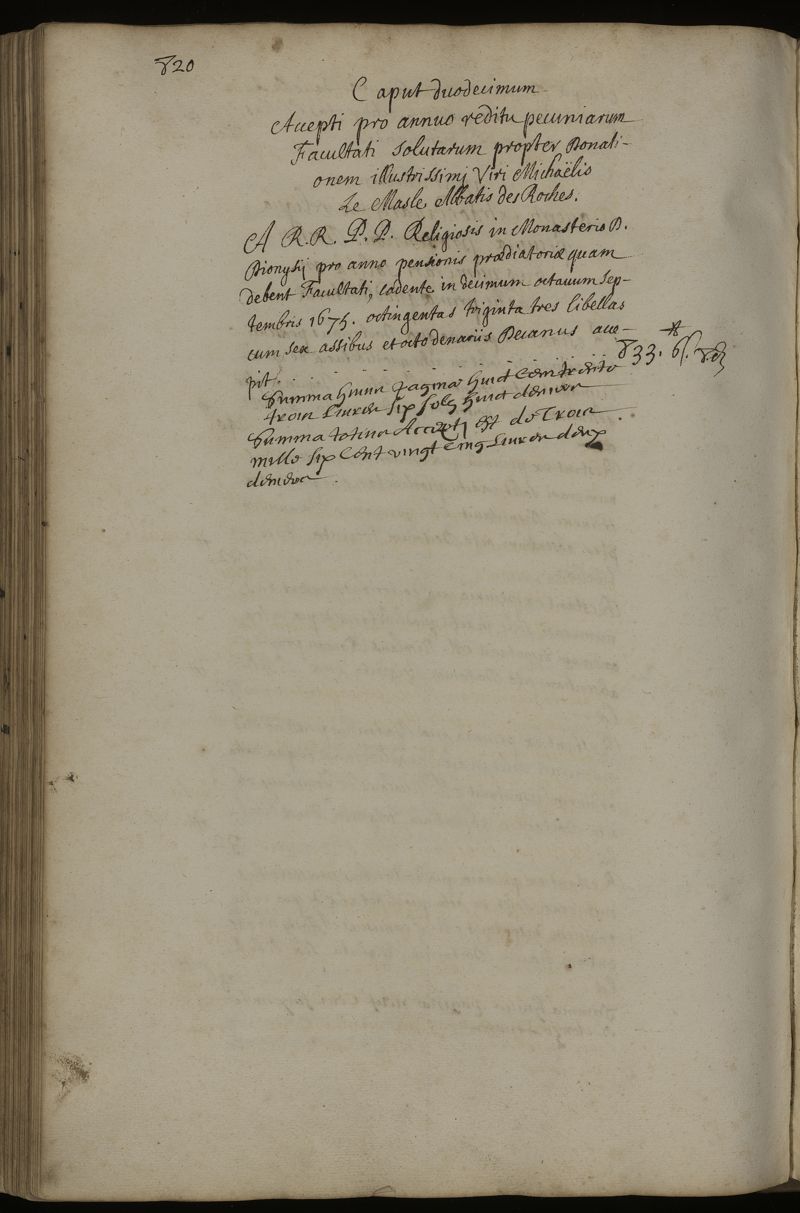 820
Caput duodecimum
Accepti pro annuo reditu pecuniarum
Facultati solutarum propter Donati-
onem illustrissimj Viri Michaëlis
Le Masle Abbatis des Roches.
A R.R. P.P. Religiosis in Monasterio D.
Dionysij pro anno pensionis prædiatoriæ quam
debent Facultati, cadente in decimum octauum Sep-
tembris 1675. octingentas triginta tres libellas
cum sex assibus et octo denariis Decanus acce-
pit. . . . . . . . . 833.ᵗᵗ 6ſ. 8.d
Summa huius paginæ huict Cent trente
trois Liures six sols huict deniers
Summa totius Accepti est de Trois
mille six Cent vingt Cinq Liures deux
deniers.